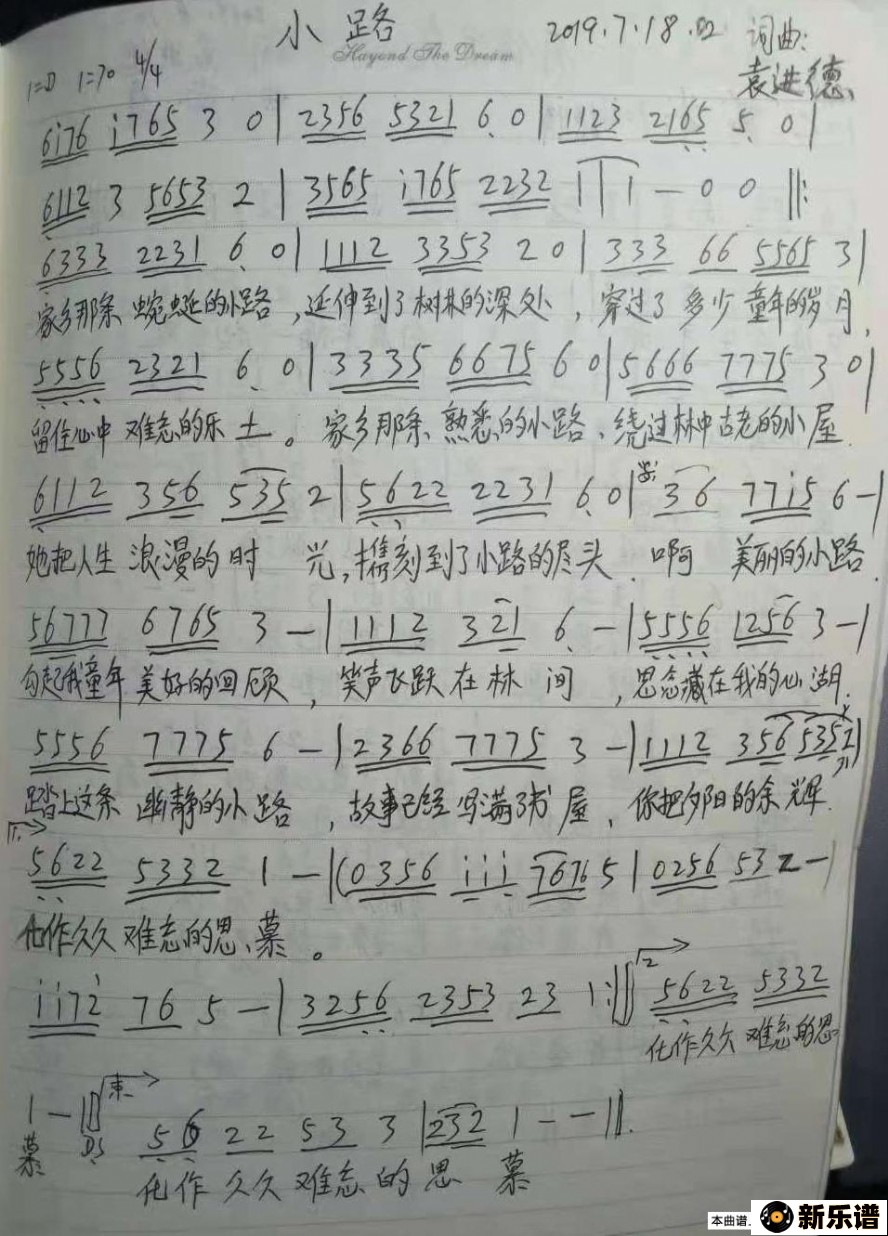 小路 2019.7.18.02 词曲:
Hayond The Dream
1=D 1=70 4/4 袁进德
6i76 i765 3 0 | 2356 5321 6 0 | 1123 2165 5 0 |
6112 3 5653 2 | 3565 i765 2232 1 | 1 - 0 0 ‖:
6333 2231 6 0 | 1112 3353 2 0 | 333 66 5565 3 |
家乡那条 蜿蜒的小路 ,延伸到了树林的深处 , 穿过了 多少 童年的岁月,
5556 2321 6 0 | 3335 6675 6 0 | 5666 7775 3 0 |
留住心中 难忘的乐土。 家乡那条 熟悉的小路、绕过林中古老的小屋.
6112 356 535 2 | 5622 2231 6 0 | 36 77i5 6 - |
她把人生 浪漫的时 光,携刻到了小路的尽头. 啊 美丽的小路.
56777 6765 3 - | 1112 321 6 - | 5556 1256 3 - |
勾起我童年 美好的回顾 , 笑声飞跃在林间 ,思念藏在我的心湖.
5556 7775 6 - | 2366 7775 3 - | 1112 356 5352 |
踏上这条 幽静的小路 ,故事已经写满了书屋 、你把夕阳的余辉.
1.
5622 5332 1 - | (0356 iii 7676 5 | 0256 53 2 - |
化作久久 难忘的思、慕。
ii72 76 5 - | 3256 2353 23 1 :‖ 2 5622 5332
化作久久 难忘的思
1 - ‖ D.S 末 56 22 53 3 | 232 1 - - ‖.
慕 化作 久久 难忘 的 思 慕
本曲谱 新乐谱